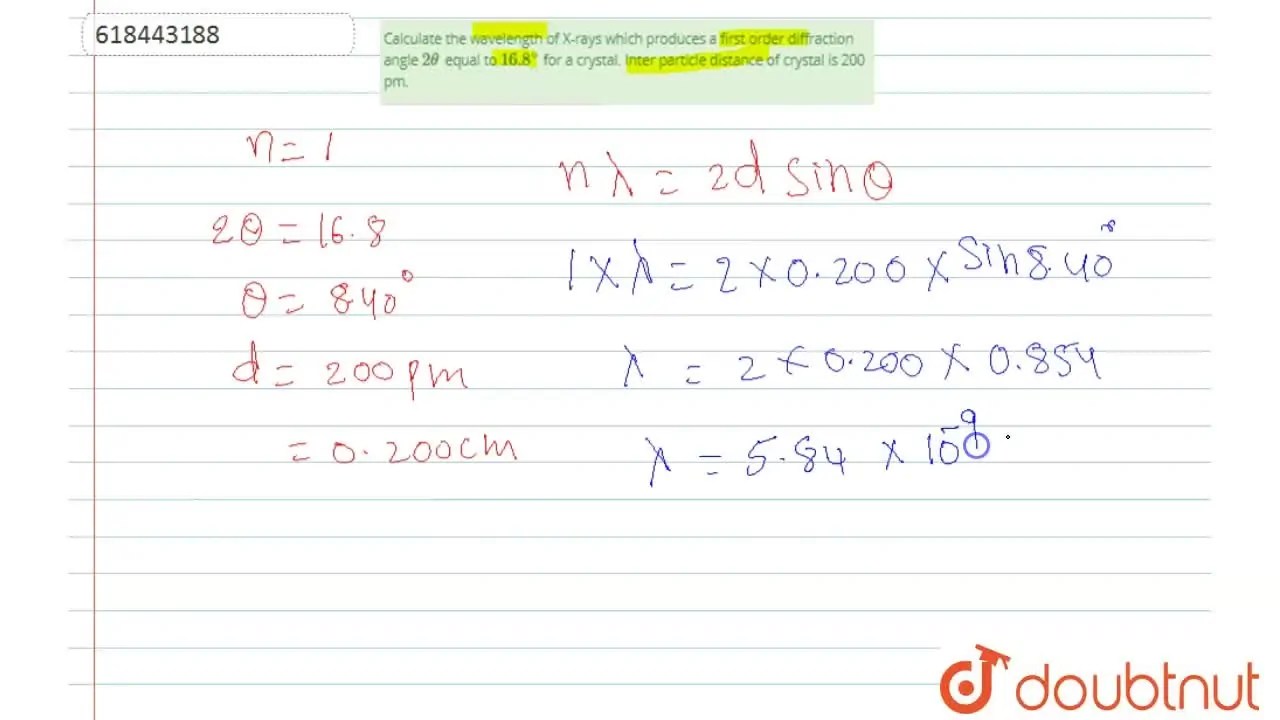 618443188
Calculate the wavelength of X-rays which produces a first order diffraction
angle 2θ equal to 16.8° for a crystal. Inter particle distance of crystal is 200
pm.
n = 1
2θ = 16.8
θ = 840°
d = 200pm
= 0.200cm
nλ = 2d sinθ
1×λ = 2×0.200× Sin8.40°
λ = 2×0.200×0.854
λ = 5.84 × 10⁻⁹
doubtnut